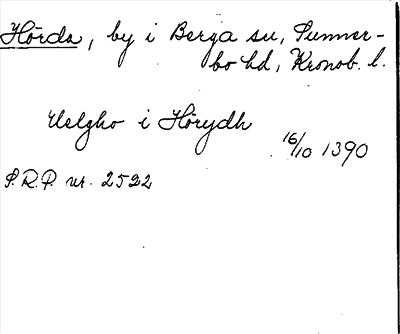 Hörda, by i Berga sn, Sunner-
bo hd, Kronob. l.
Uelgho i Hörydh
16/10 1390
S.R.P. nr. 2522